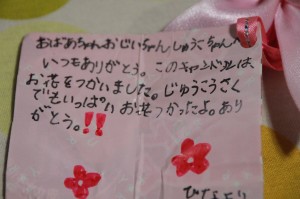 おばあちゃんおじいちゃんしゅうこちゃんへ
いつもありがとう。このキャンドルは
お花をつかいました。じゅうこうさく
でもいっぱいお花つかったよ。あり
がとう。!!
ひなより